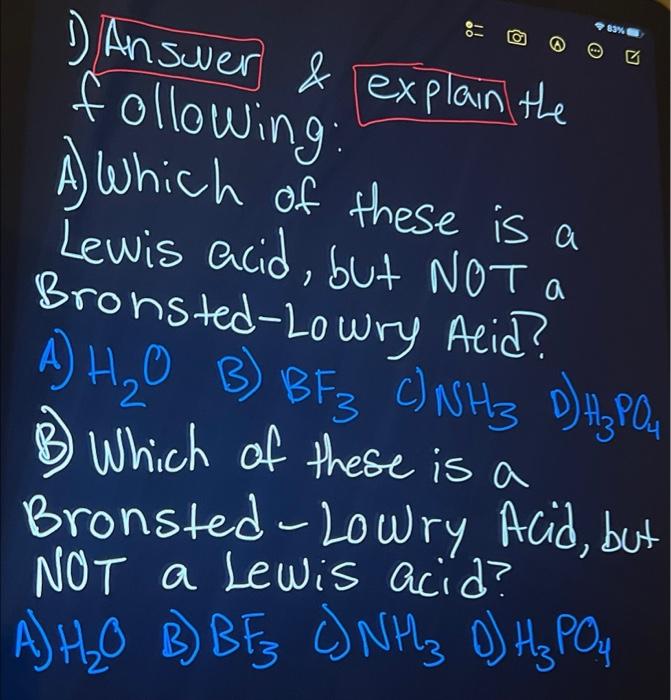 83%
1) Answer & explain the
following:
A) Which of these is a
Lewis acid, but NOT a
Bronsted-Lowry Acid?
A) H₂O B) BF₃ C) NH₃ D) H₃PO₄
B) Which of these is a
Bronsted-Lowry Acid, but
NOT a Lewis acid?
A) H₂O B) BF₃ C) NH₃ D) H₃PO₄